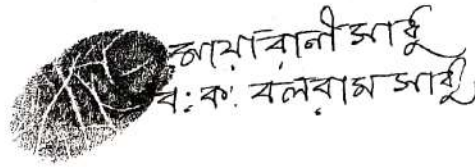 মায়ারানী সাধু
ব: ক: বলরাম সাধু